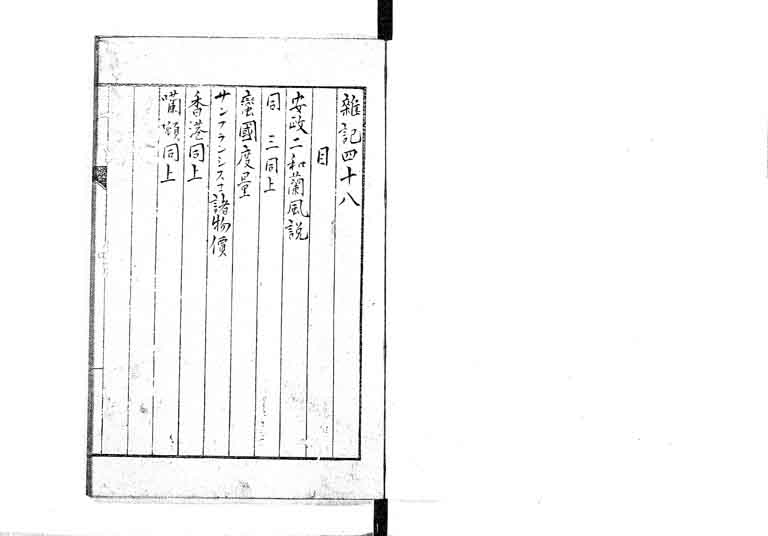 雜記四十八
目
安政二和蘭風説
同 三同上
蛮國度量
サンフランシスコ諸物價
香港同上
同上